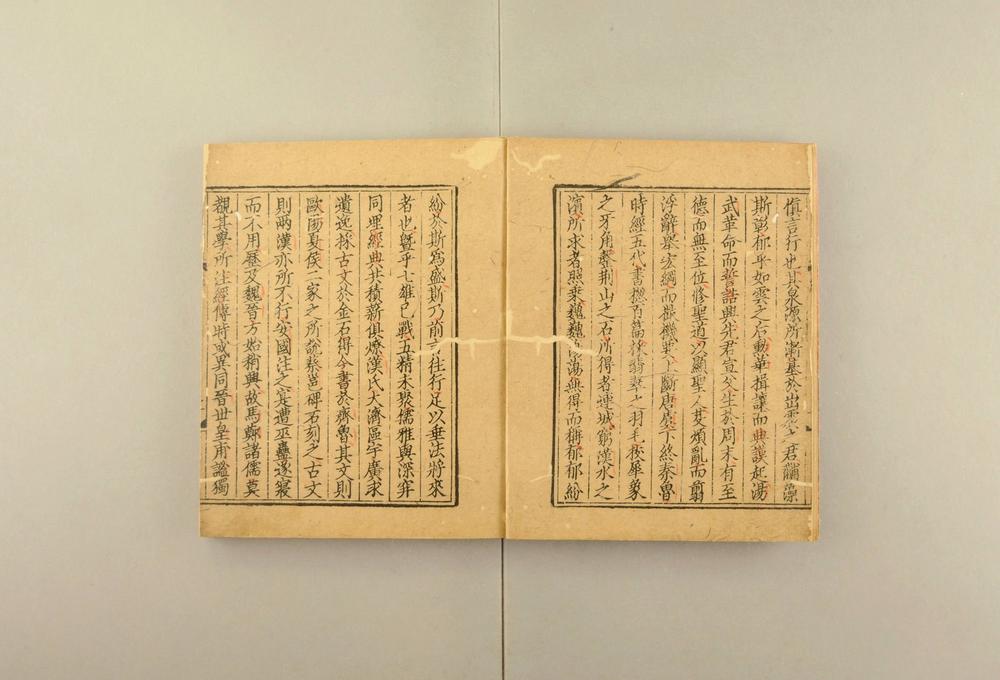 慎言行也其泉源所漸基於出震之君黼藻
斯彰郁乎如雲之后勳華揖讓而典謨起湯
武革命而誓誥興先君宣父生於周末有至
德而無至位修聖道以顯聖人芟煩亂而翦
浮辭舉宏綱而撮機要上斷唐虞下終秦魯
時經五代書揔百篇採翡翠之羽毛拔犀象
之牙角罄荊山之石所得者連城窮漢水之
濱所求者照乘巍巍蕩蕩無得而稱郁郁紛
紛於斯爲盛斯乃前言往行足以垂法將來
者也暨乎七雄已戰五精未聚儒雅與深穽
同埋經典共積薪俱燎漢氏大濟區宇廣求
遺逸採古文於金石得今書於齊魯其文則
歐陽夏侯二家之所說蔡邕碑石刻之古文
則兩漢亦所不行安國注之寔遭巫蠱遂寢
而不用歷及魏晉方始稍興故馬鄭諸儒莫
觀其學所注經傳時或異同晉世皇甫謐獨